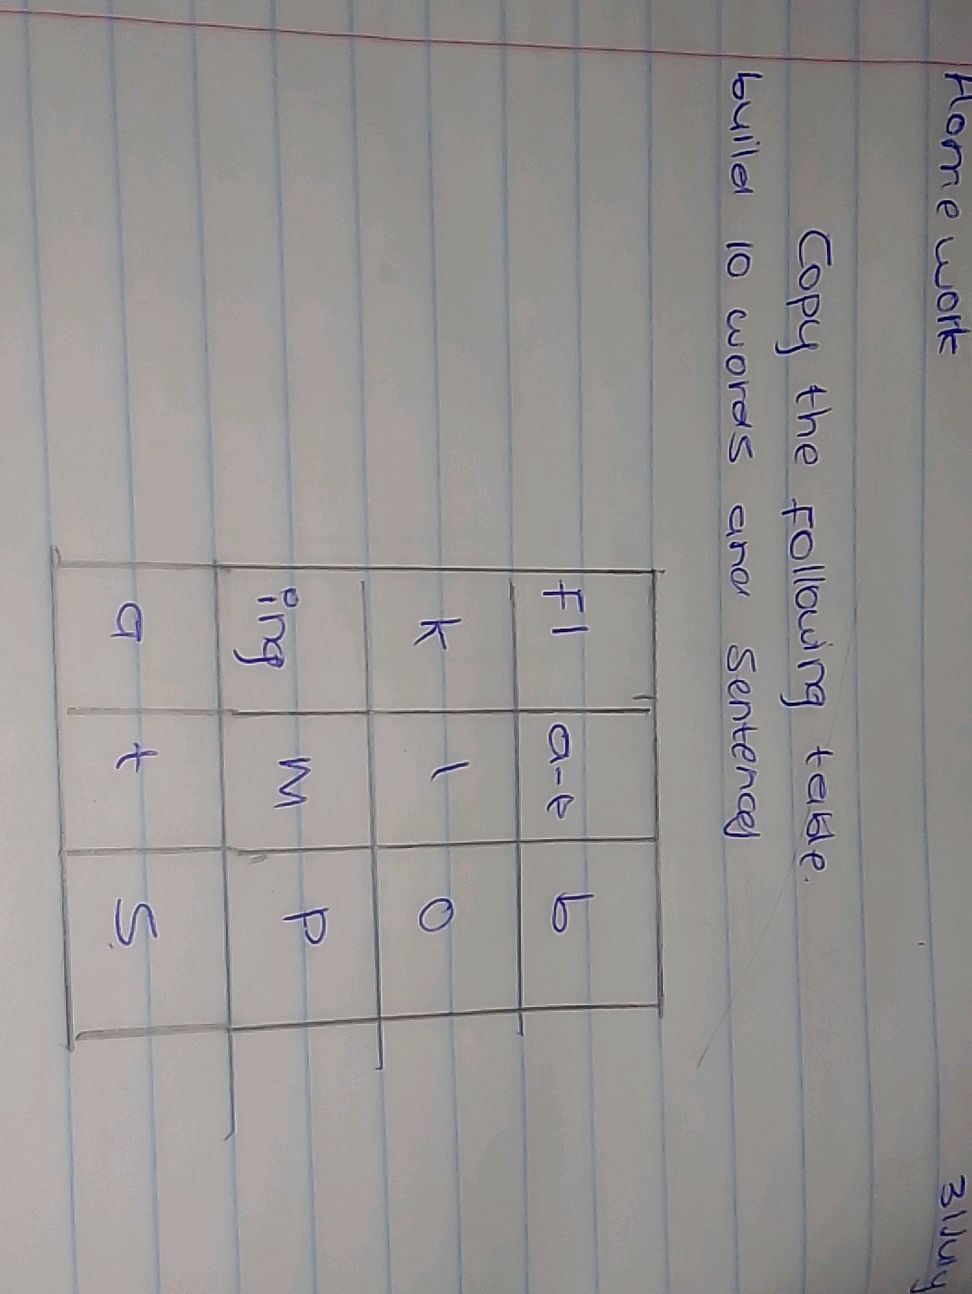 Home work 31 July
Copy the following table.
build 10 words and sentences
Fl a-e b
k l o
ing m p
a t s